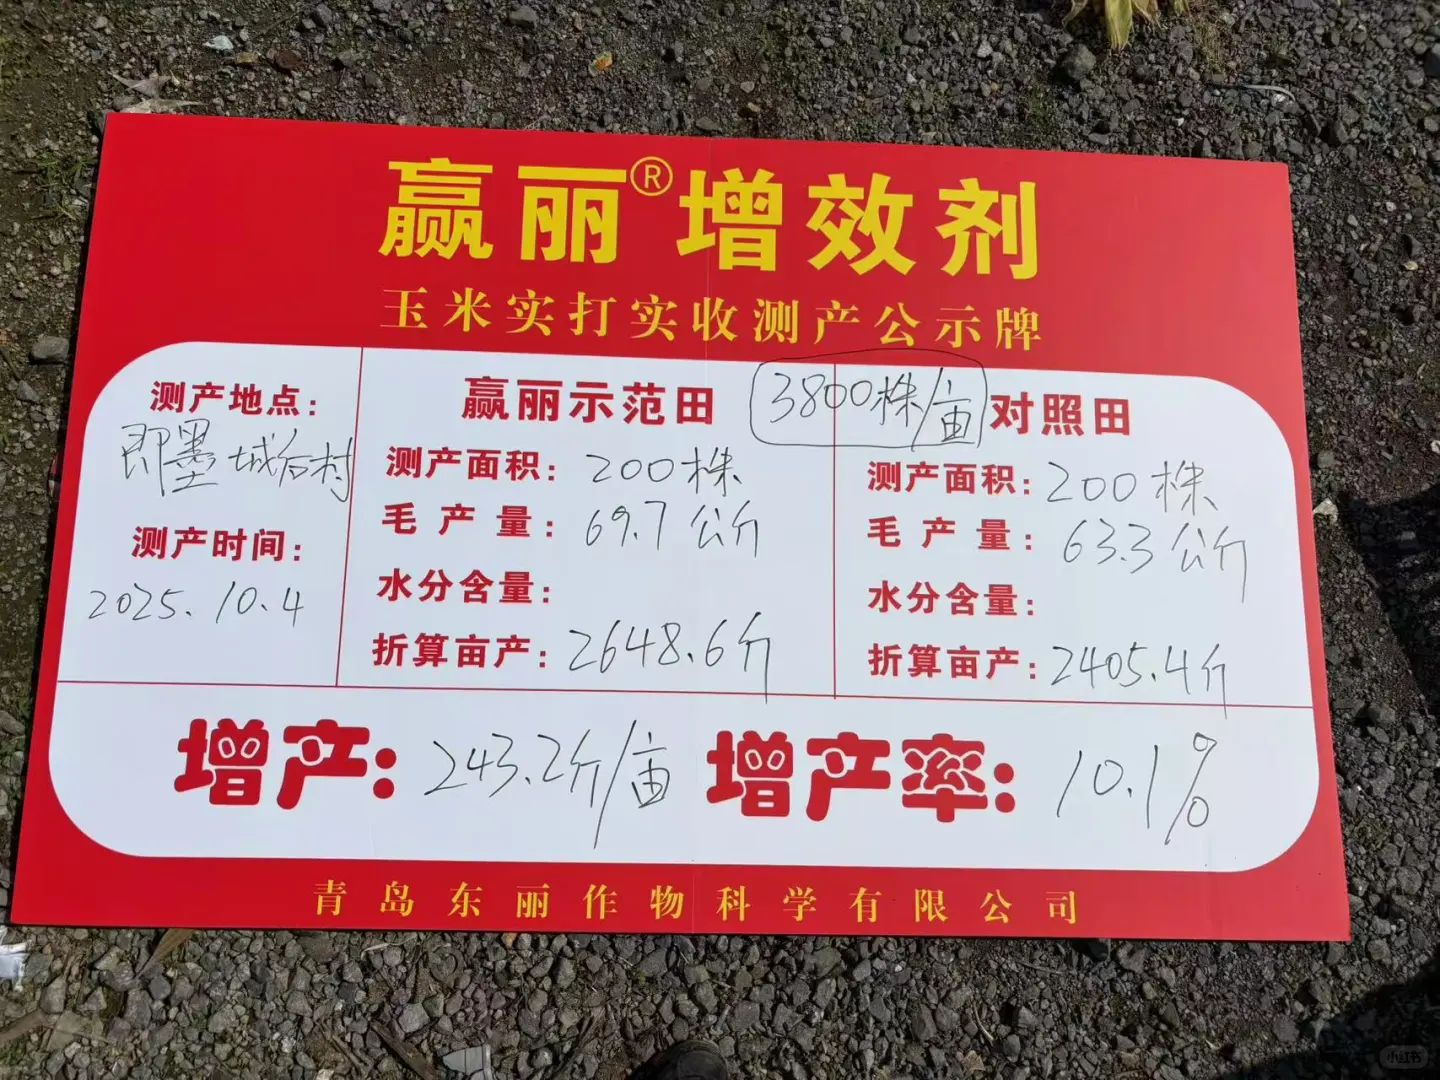 赢丽®增效剂
玉米实打实收测产公示牌
测产地点:
即墨城后村
测产时间:
2025.10.4
赢丽示范田
测产面积: 200株
毛产量: 69.7公斤
水分含量:
折算亩产: 2648.6斤
3800株/亩
对照田
测产面积: 200株
毛产量: 63.3公斤
水分含量:
折算亩产: 2405.4斤
增产: 243.2斤/亩 增产率: 10.1%
青岛东丽作物科学有限公司
小红书